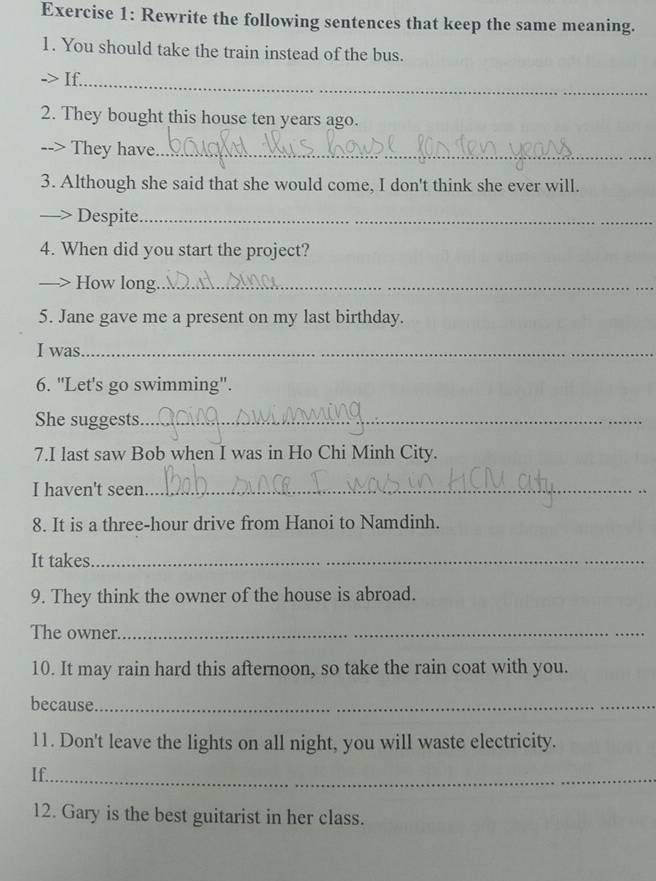 Exercise 1: Rewrite the following sentences that keep the same meaning.
1. You should take the train instead of the bus.
-> If
2. They bought this house ten years ago.
--> They have bought this house for ten years
3. Although she said that she would come, I don't think she ever will.
—> Despite
4. When did you start the project?
—> How long is it since
5. Jane gave me a present on my last birthday.
I was
6. "Let's go swimming".
She suggests going swimming
7.I last saw Bob when I was in Ho Chi Minh City.
I haven't seen Bob since I was in HCM city
8. It is a three-hour drive from Hanoi to Namdinh.
It takes
9. They think the owner of the house is abroad.
The owner
10. It may rain hard this afternoon, so take the rain coat with you.
because
11. Don't leave the lights on all night, you will waste electricity.
If
12. Gary is the best guitarist in her class.